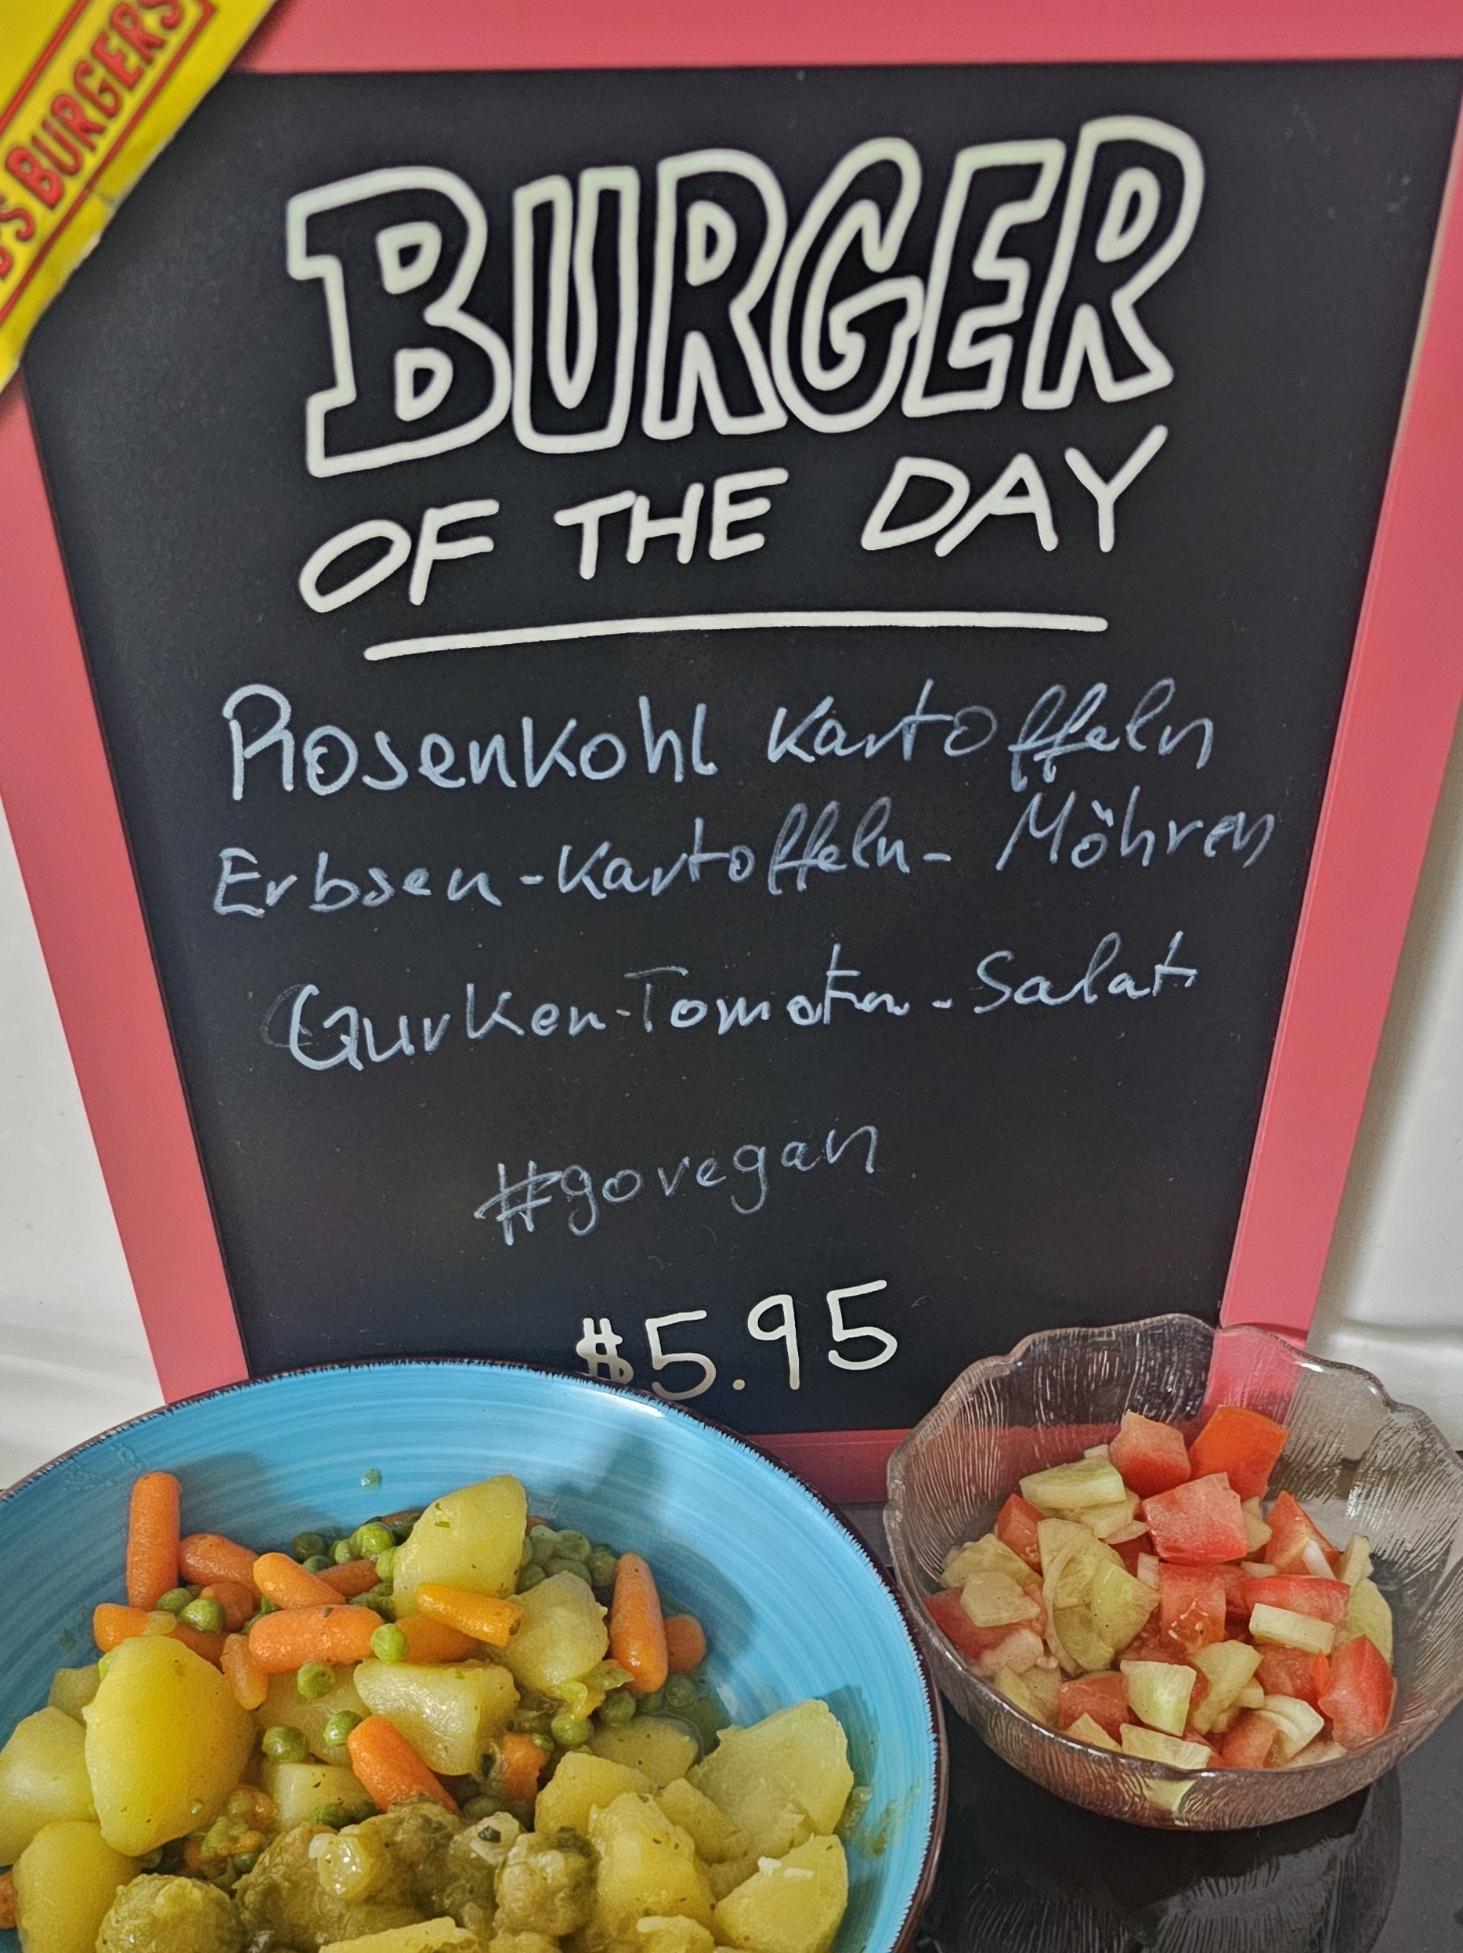 'S BURGERS
BURGER
OF THE DAY
Rosenkohl Kartoffeln
Erbsen-Kartoffeln-Möhren
Gurken-Tomaten-Salat
#govegan
$5.95